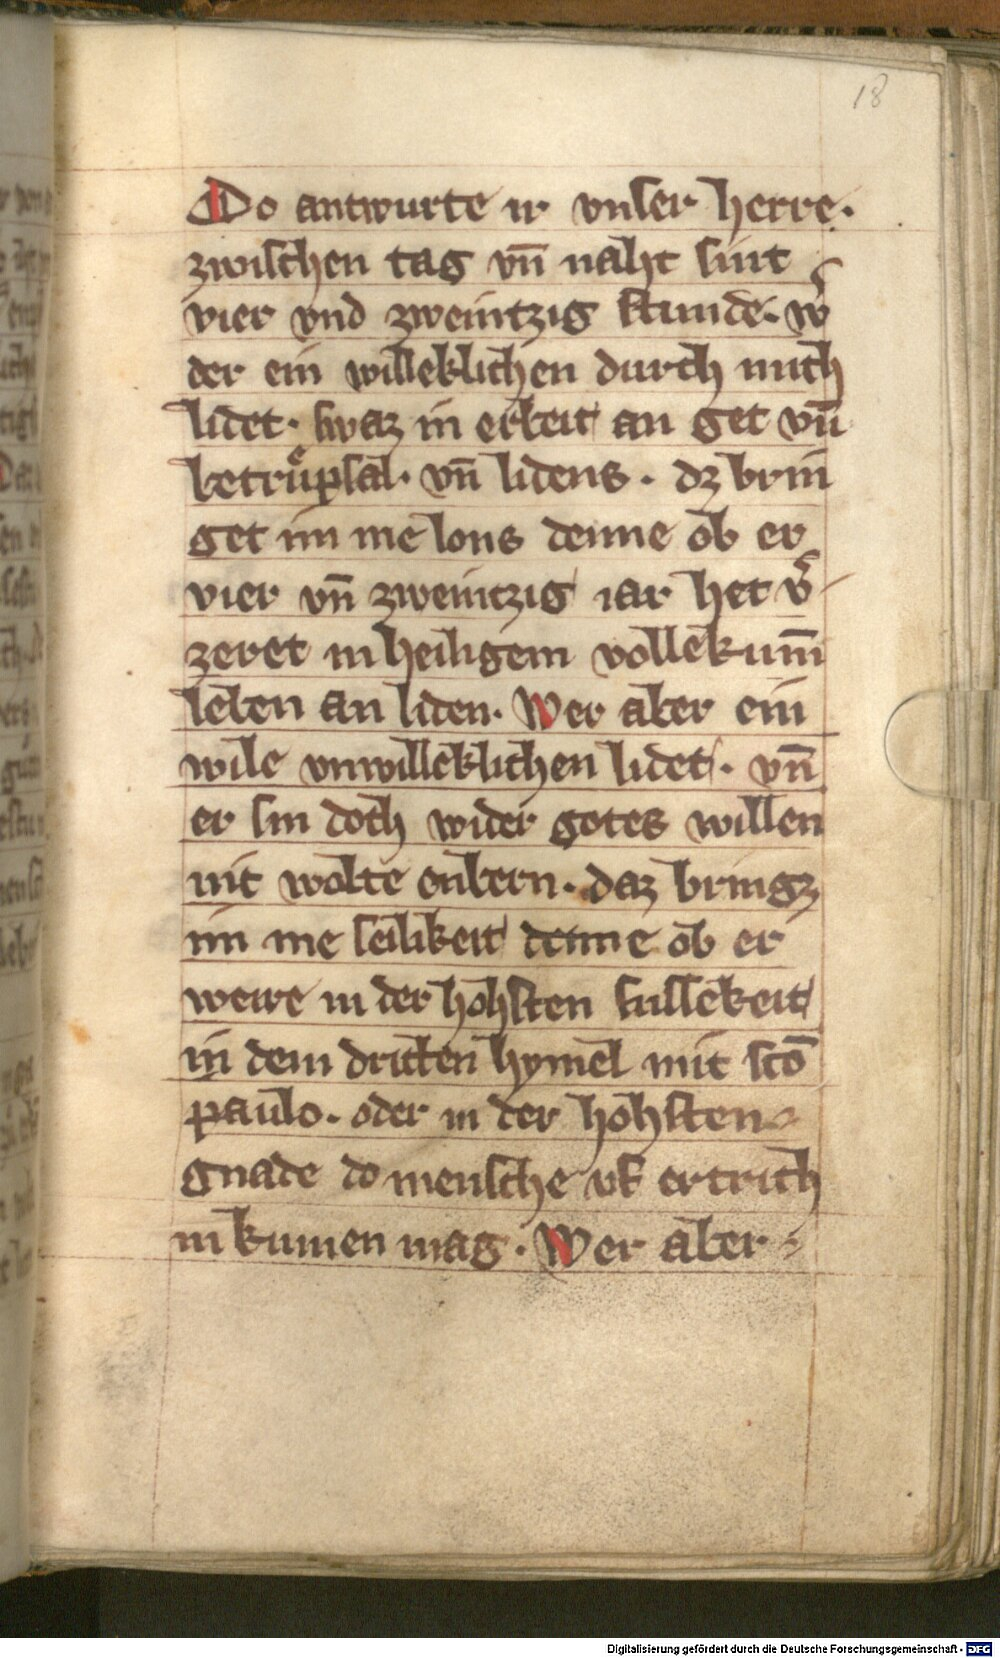 18
Do antwurte ir vnser herre.
zwischen tag vn̄ naht sint
vier vnd zweintzig stunde. w͛
der ein willeklichen durch mich
lidet. swaz in erbeit an get vn̄
betruͤpsal. vn̄ lidens. dz brin
get im me lons denne ob er
vier vn̄ zweintzig iar het v͛
zeret in heiligem vollekum̄
leben an liden. Wer aber ein
wile vnwilleklichen lidet. vn̄
er sin doch wider gotes willen
nit wolte enbern. daz bringz
im me selikeit denne ob er
were in der hohsten stillekeit
in dem dritten hymel mit sco̅
paulo. oder in der hohsten
gnade do mensche vf ertrich
in kumen mag. Wer aber
Digitalisierung gefördert durch die Deutsche Forschungsgemeinschaft - DFG